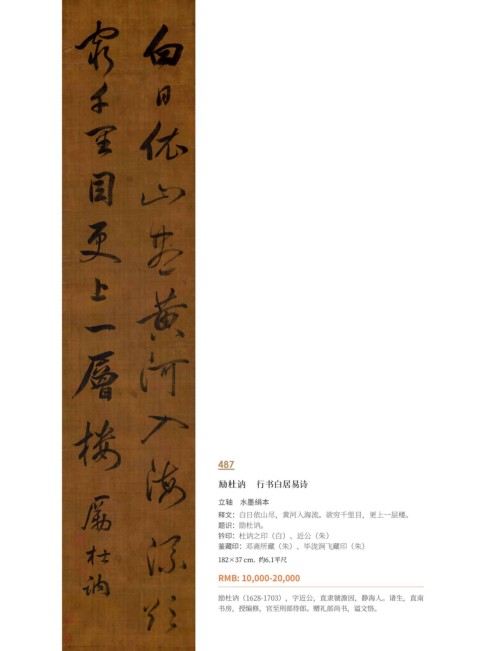 白日依山尽黄河入海流欲
穷千里目更上一層楼 厲杜訥
487
励杜讷 行书白居易诗
立轴 水墨绢本
释文：白日依山尽，黄河入海流。欲穷千里目，更上一层楼。
题识：励杜讷。
钤印：杜讷之印（白）、近公（朱）
鉴藏印：邓裔所藏（朱）、毕泷涧飞藏印（朱）
182×37 cm. 约6.1平尺
RMB: 10,000-20,000
励杜讷（1628-1703），字近公，直隶号澹园，静海人。诸生，直南
书房，授编修，官至刑部侍郎。赠礼部尚书，谥文恪。